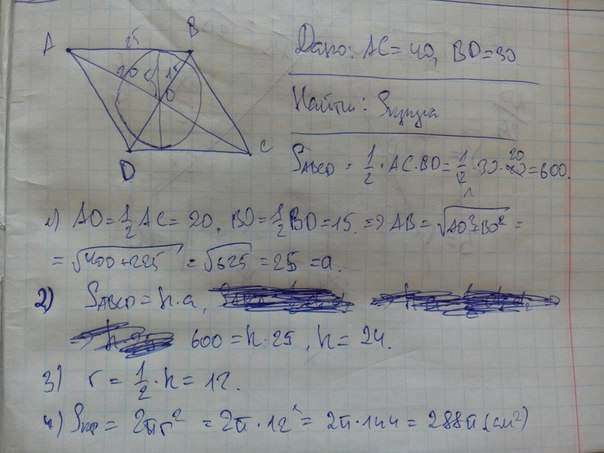 A 25 B
20 15
O
D C
Дано: AC = 40, BD = 30
Найти: Sкруга
SABCD = 1/2 · AC · BD = 1/2 · 30 · 20 = 600.
1) AO = 1/2 AC = 20, BO = 1/2 BD = 15. => AB = √AO²+BO² =
= √400+225 = √625 = 25 = a.
2) SABCD = h·a,
600 = h·25, h = 24.
3) r = 1/2 · h = 12.
4) Sкр = 2πr² = 2π·12² = 2π·144 = 288π (см²)